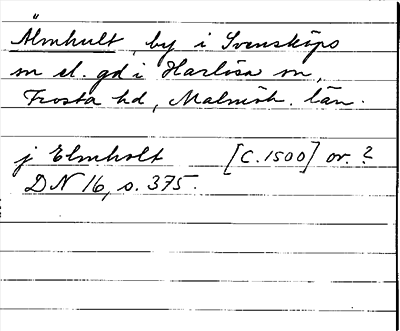 Älmhult, by i Svensköps
sn el. gd i Harlösa sn,
Frosta hd, Malmöh. län.
j Elmholt [C. 1500] or. ?
DN 16, s. 375.